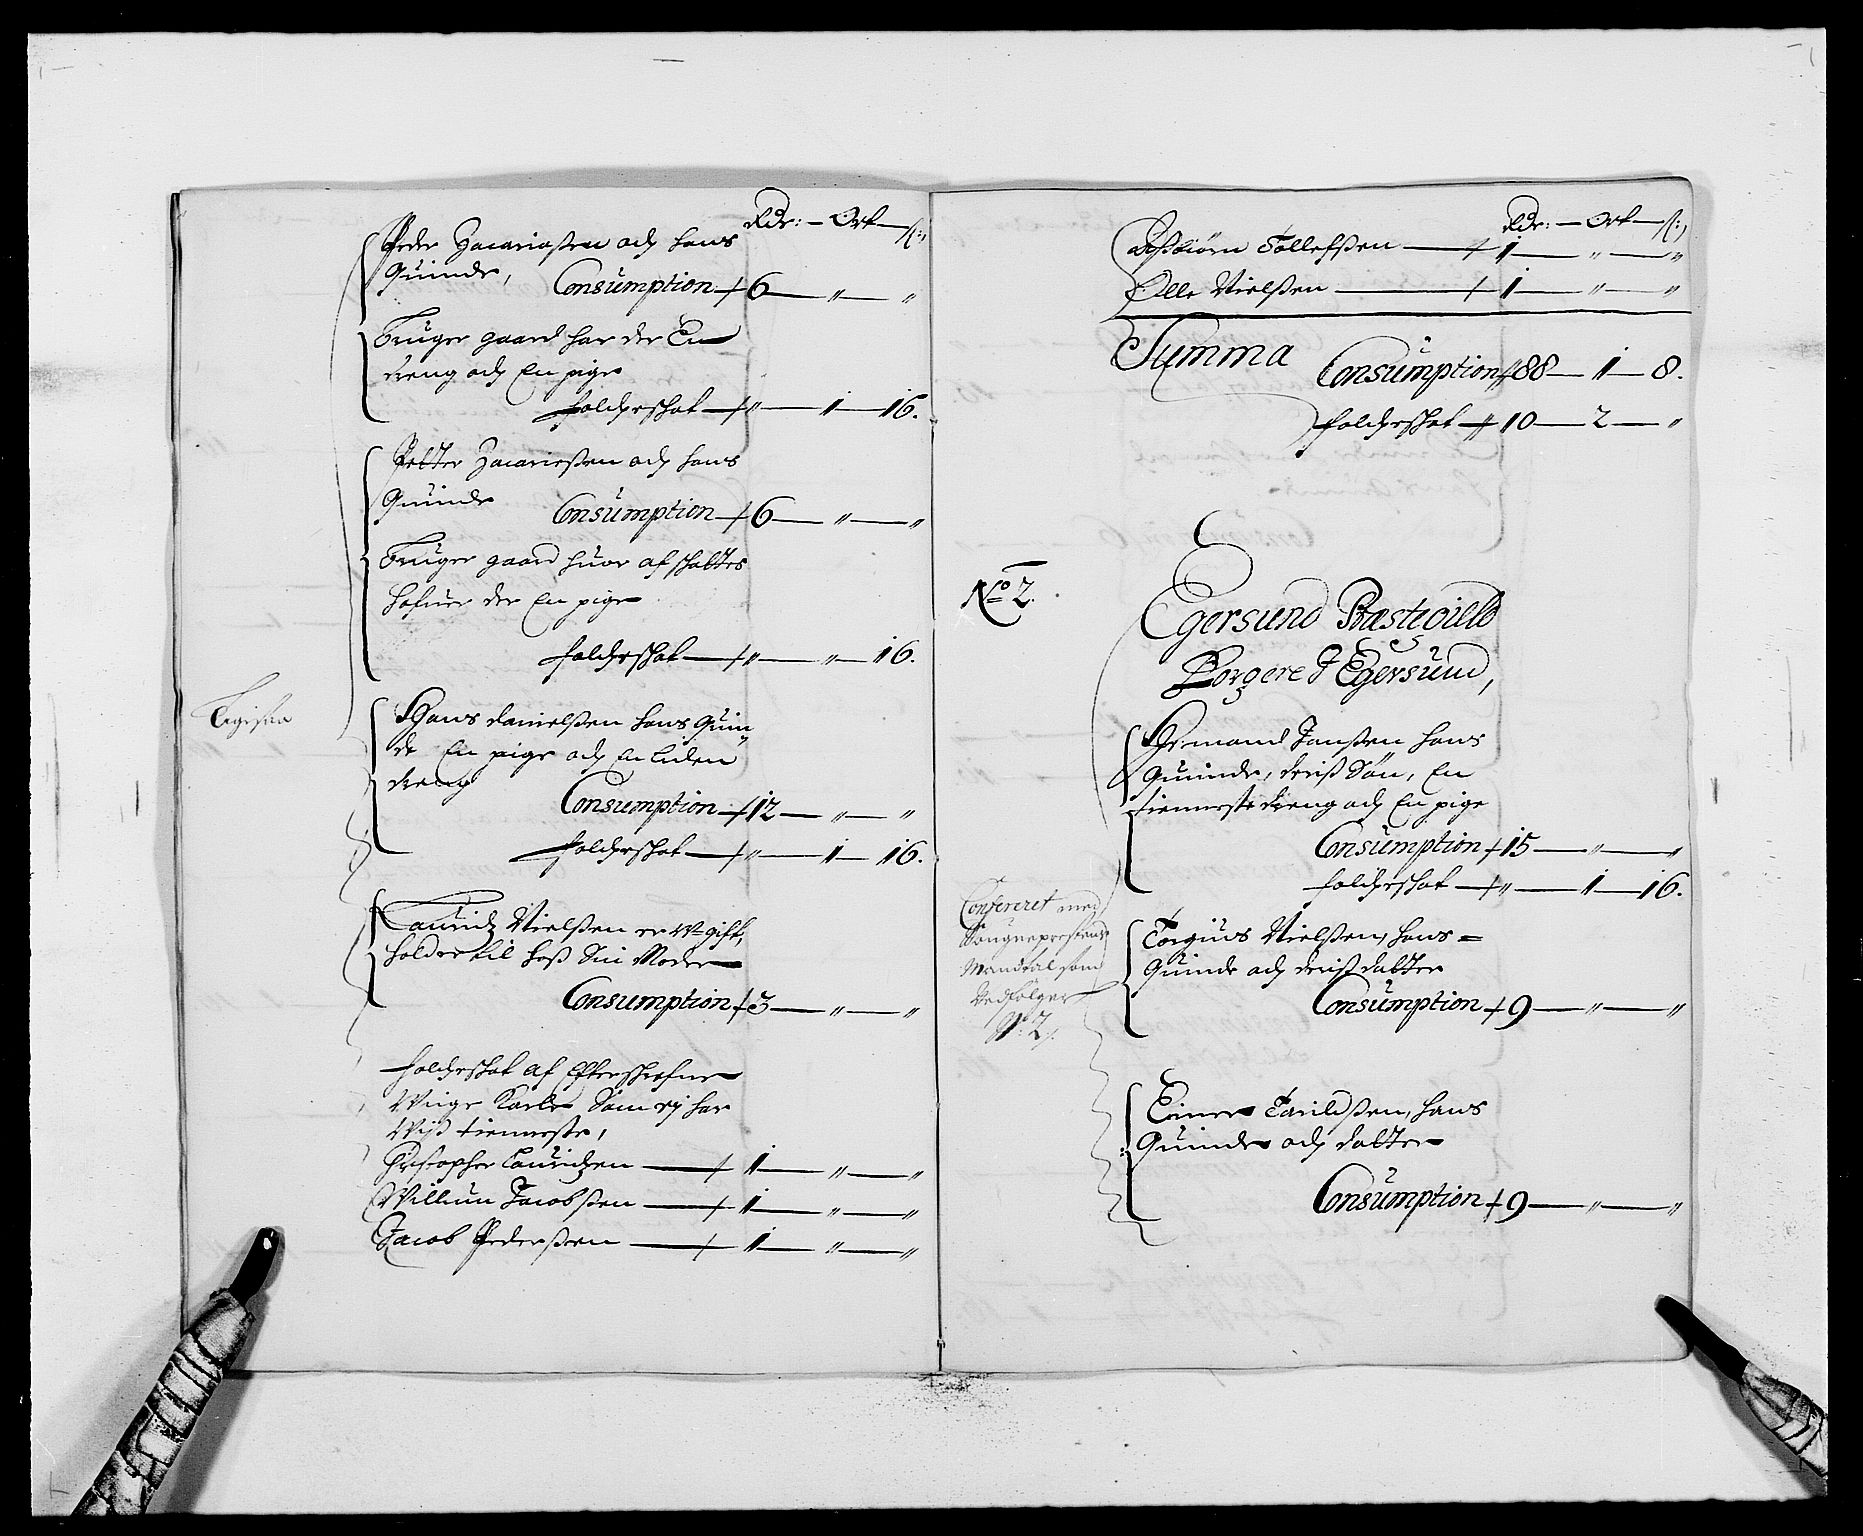 Rdr: — Ort — ſ:
Peder Zacariaßen och hans
Quinde,
Consumption — 6 — „ — „
Bruger gaard har der En
dreng och En pige
folcheschat — „ — 1 — 16.
Petter Zacariaßen och hans
Quinde
Consumption — 6 — „ — „
Bruger gaard huor af schattes
hafuer der En pige
folcheschat — „ — „ — 16.
Hans Danielßen hans Quin
de En pige och En liden
dreng
Consumption — 12 — „ — „
folcheschat — „ — 1 — 16.
Lauridz Nielßen er Vgift,
holder til hoß Sin Moder
Consumption — 3 — „ — „
folcheschat af Efterschrefne
Unge Karle Som ej har
Viß tienneste,
Christopher Lauridzen — 1 — „ — „
Willum Jacobßen — 1 — „ — „
Jacob Pederßen — 1 — „ — „
Rdr: — Ort — ſ:
Aßbiörn Tollefsen — 1 — „ — „
Olle Nielßen — 1 — „ — „
Summa
Consumption 88 — 1 — 8.
folcheschat 10 — 2 — „
No 2.
Egersund Præstegield
Borgere J Egersund,
Hermand Janßen hans
Quinde, deriß Sön, En
tienneste dreng och En pige
Consumption — 15 — „ — „
folcheschat — „ — 1 — 16.
Confereret med
Sougneprestens
Mandtal som
Vedfölger
No 2.
Torgius Nielßen, hans
Quinde och deriß datter
Consumption — 9 — „ — „
Einer Tarildßen, hans
Quinde och datter
Consumption — 9 — „ — „